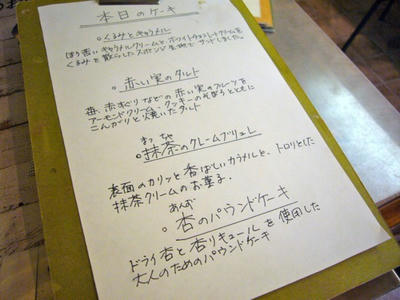 本日のケーキ
。くるみとキャラメル
ほろ苦いキャラメルクリームとホワイトチョコレートクリームを
くるみを散らしたスポンジ生地でサンドしました。
。赤い実のタルト
苺、赤すぐりなどの赤い実のフルーツを
アーモンドクリーム、クッキーのそぼろとともに
こんがりと焼いたタルト
まっちゃ
。抹茶のクレームブリュレ
表面のカリッと香ばしいカラメルと、トロリとした
抹茶クリームのお菓子。
あんず
。杏のパウンドケーキ
ドライ杏と杏リキュールを使用した
大人のためのパウンドケーキ